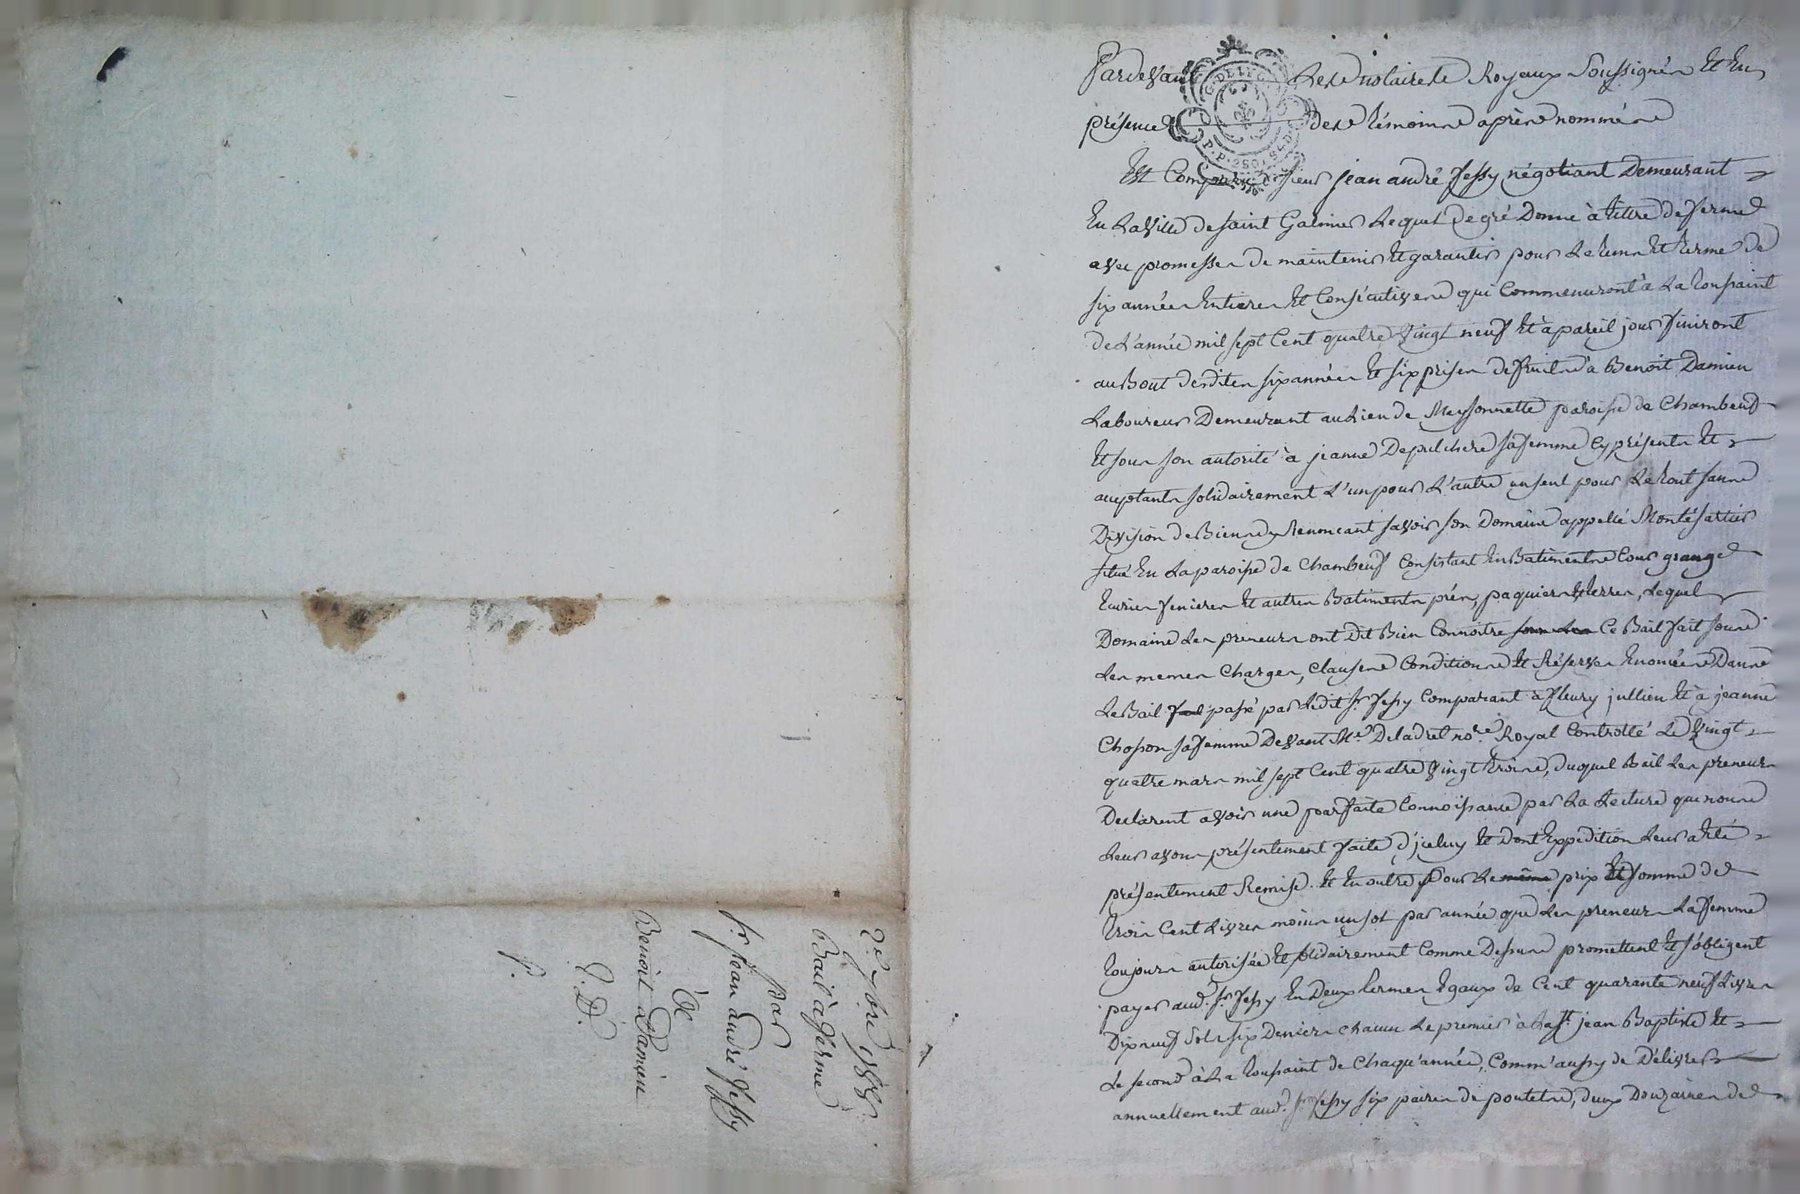 Pardevant Les notaires Royaux Soussignés Et En
G. DE LYON
P.P. 2 SOLS 4 D.
présence des témoins après nommés
Est Comparu sieur jean andré Jessy négotiant Demeurant
En La Ville de saint Galmier Lequel de gré Donne à titre de ferme
avec promesses de maintenir Et garantir pour Le tems Et terme de
six années Entieres Et Consécutives qui Commenceront à La toussaint
de L'année mil sept Cent quatre Vingt neuf Et à pareil jour finiront
au Bout desdites six années Et six prises de fruits à Benoit Damien
Laboureur Demeurant au Lieu de Meysonnette paroisse de Chambeuf
Et sous son autorité à jeanne Depulchere sa femme Cy présents Et
acceptants solidairement L'un pour L'autre un seul pour Le tout sans
Division de Biens y Renoncant savoir son Domaine appellé Montésartier
situé En La paroisse de Chambeuf Consistant En Batiments Cour grange
Ecurie fenieres Et autres Batiments prés, paquiers Et terres, Lequel
Domaine Les preneurs ont dit Bien Connoitre Ce Bail fait sous
Les memes Charges, Clauses Conditions Et Réserves Enoncées Dans
Le Bail passé par Ledit Sr Jessy Comparant à fleury jullien Et à jeanne
Chosson sa femme Devant Me Deladret nore Royal Controllé Le Vingt
quatre mars mil sept Cent quatre Vingt trois, duquel Bail Les preneurs
Declarent avoir une parfaite Connoissance par La Lecture que nous
Leur avons présentement faite d'jceluy Et dont Expedition Leur a Eté
présentement Remise. Et En outre pour Le même prix Et somme de
trois Cent Livres moins un sol par année que Les preneurs La femme
toujours autorisée Et solidairement Comme Dessus promettent Et s'obligent
payer aud. Sr Jessy En Deux termes Egaux de Cent quarante neuf Livres
Dix neuf sols six Deniers chacun Le premier à La St jean Baptiste Et
Le second à La toussaint de Chaqu'année, Comm'aussy de Délivrer
annuellement aud. Sr Jessy six paires de poulets, deux Douzaines de
2e 7bre 1788.
Bail à ferme
Par
Sr Jean andré Jessy
à
Benoit Damien